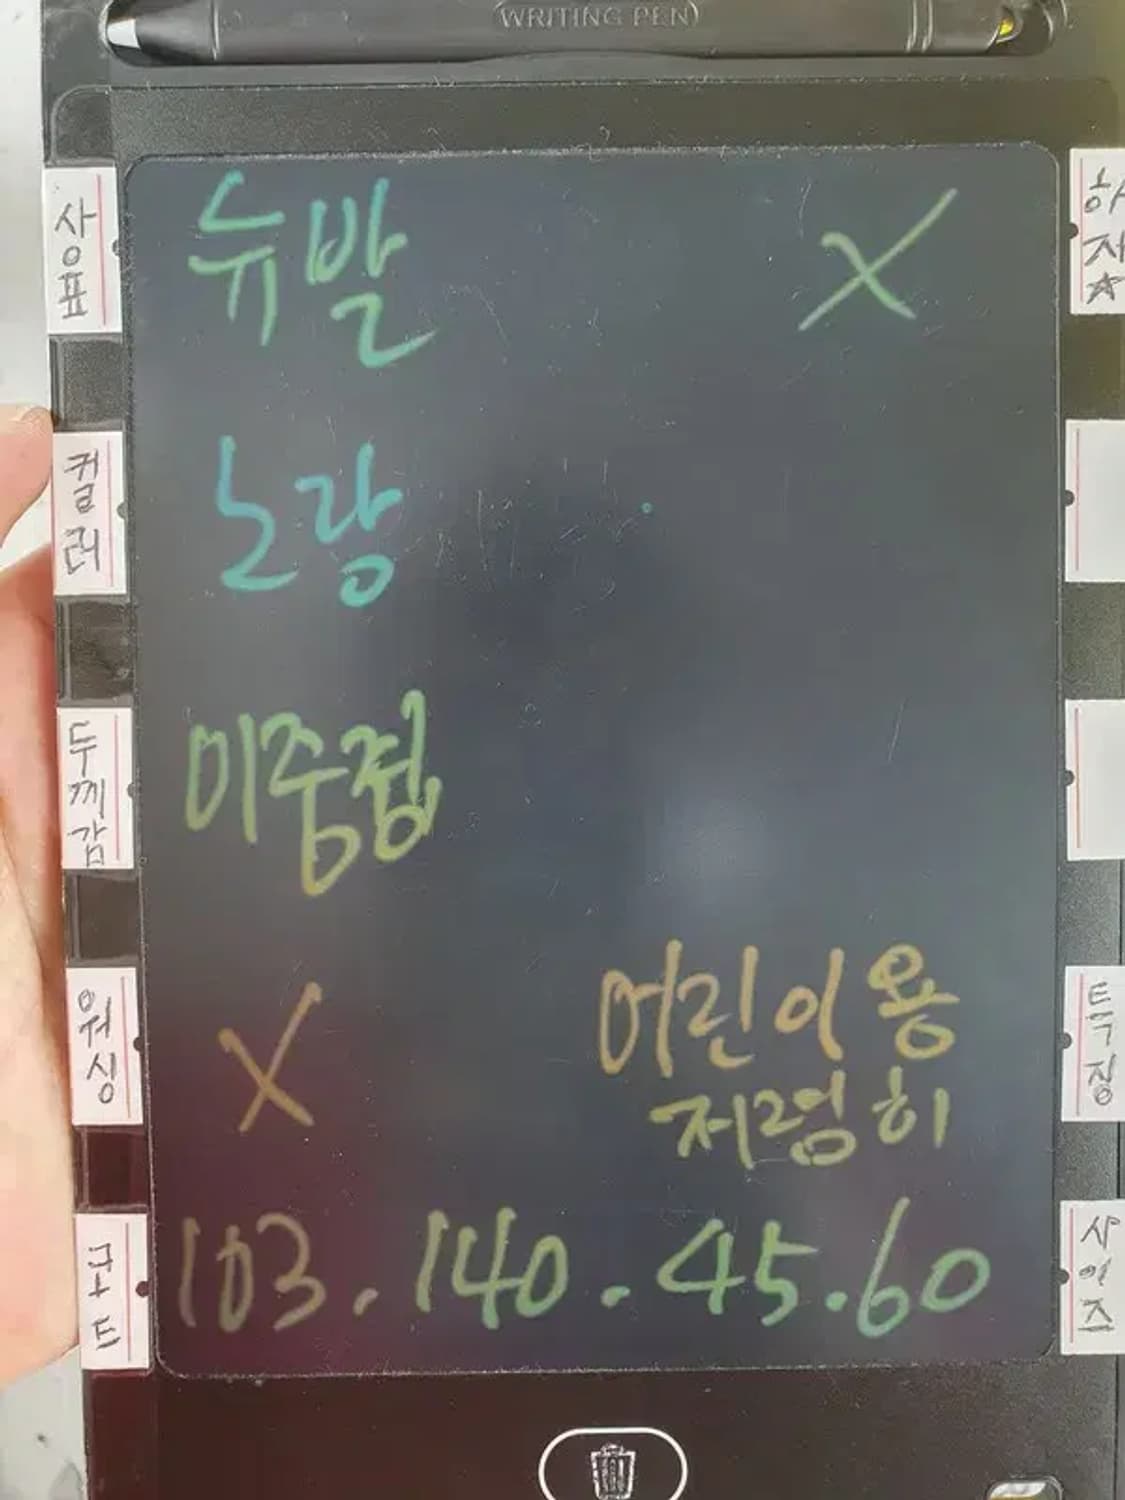 WRITING PEN
상표
뉴발
X
하자☆
컬러
노랑
두께감
이중졉
워싱
X
어린이용
저렴히
특징
코트
103. 140. 45. 60
사이즈